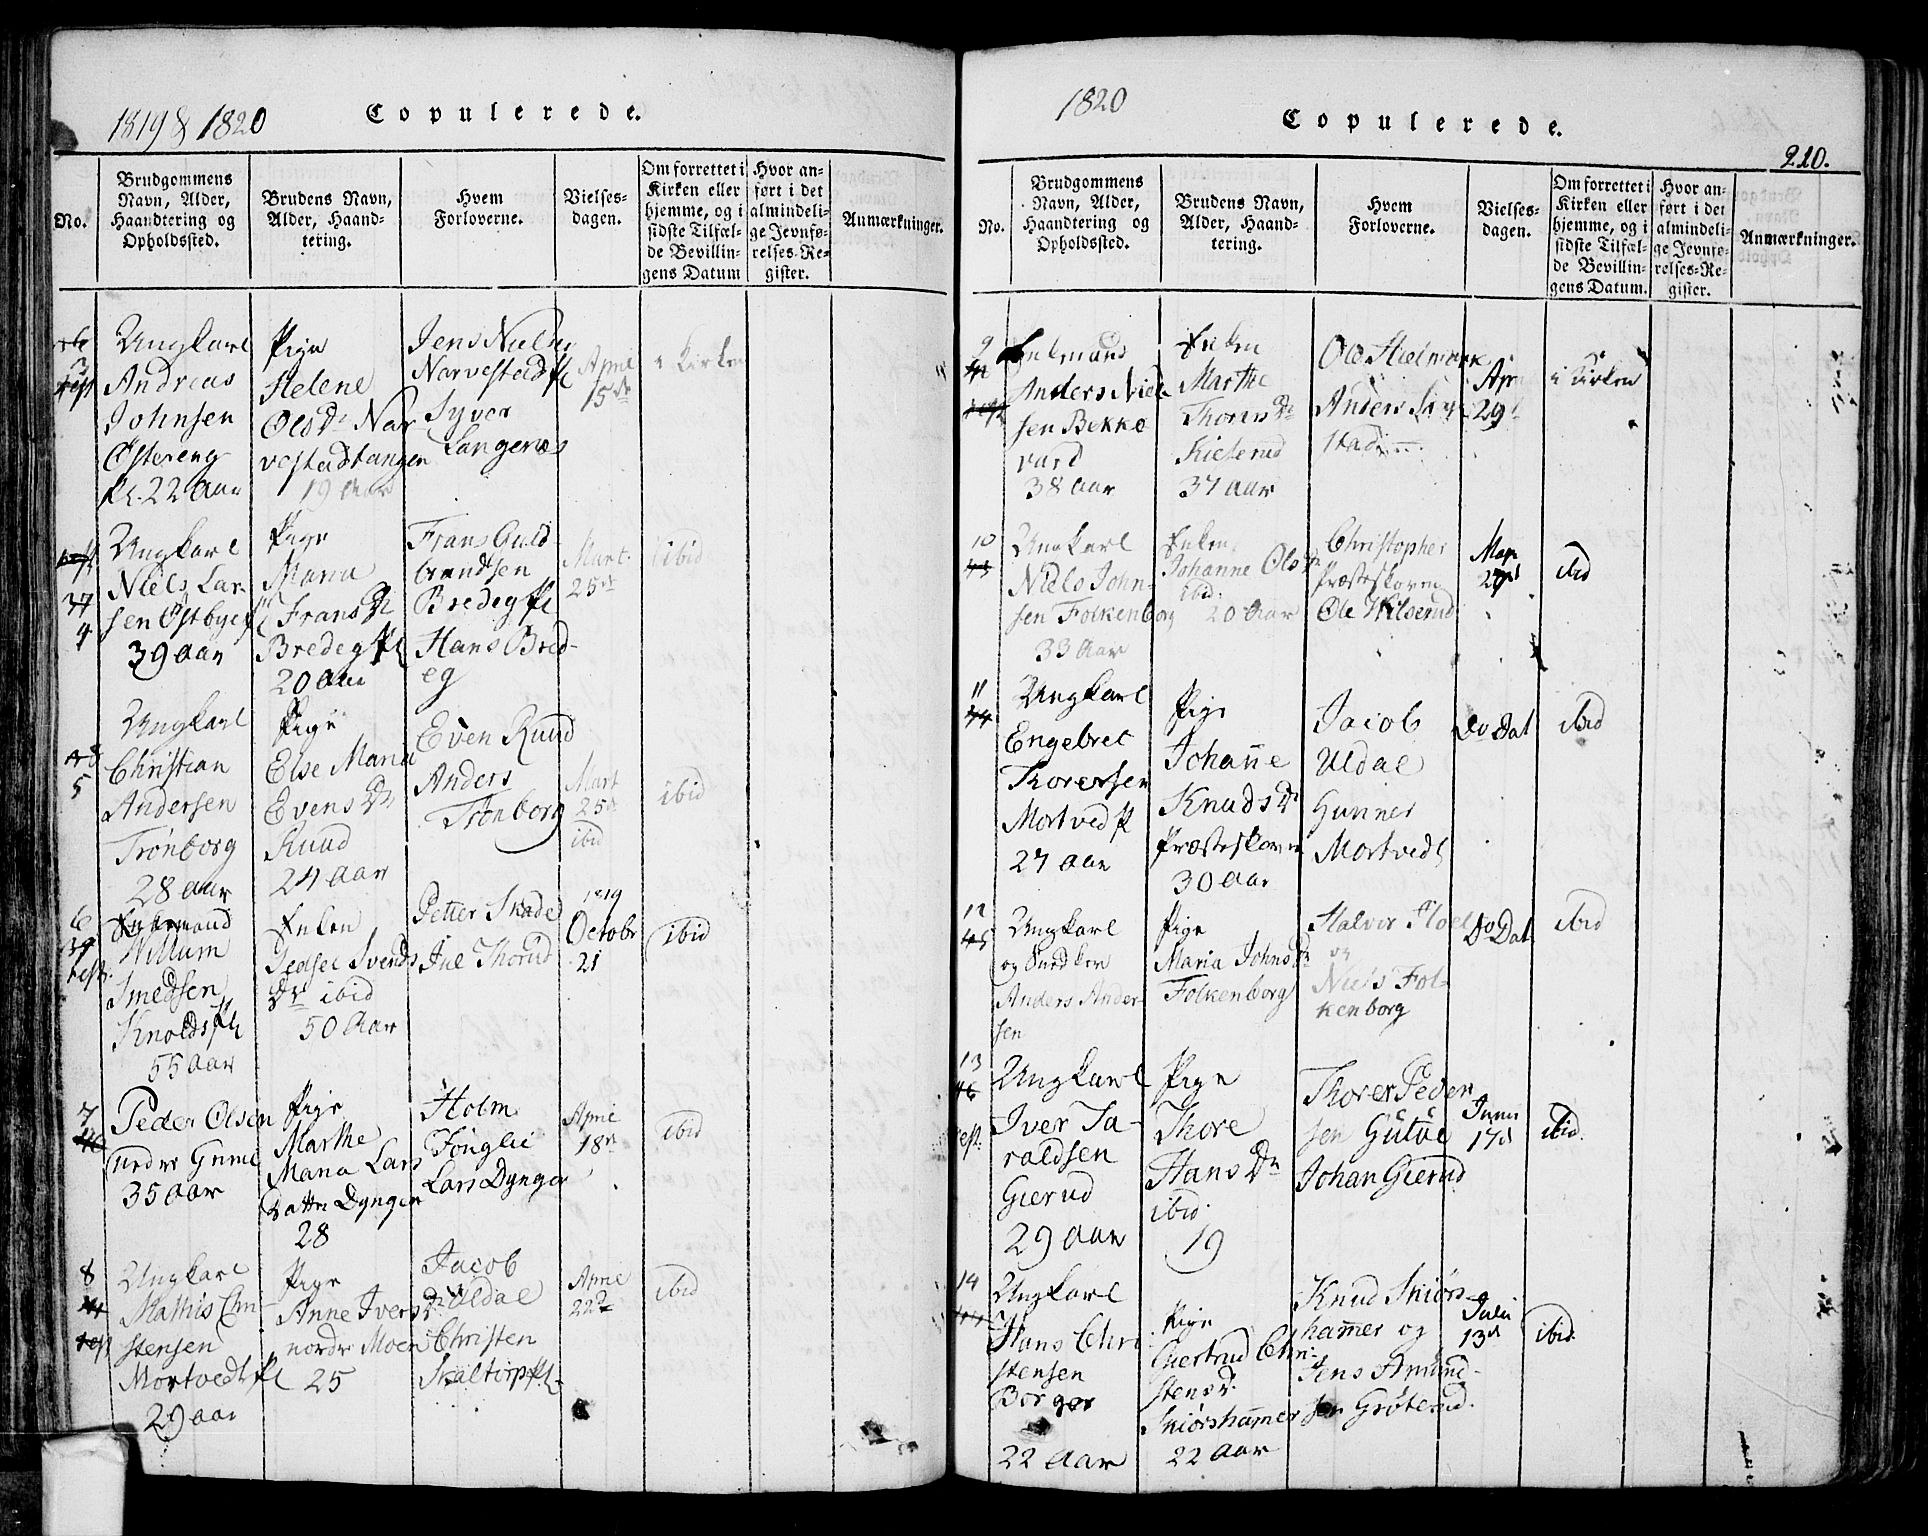 1819 & 1820
Copulerede.
No.
Brudgommens
Navn, Alder,
Haandtering og
Opholdssted.
Brudens Navn,
Alder, Haand-
tering.
Hvem
Forloverne.
Vielses-
dagen.
Om forrettet i
Kirken eller
hjemme, og i
sidste Tilfæl-
de Bevillin-
gens Datum
Hvor an-
ført i det
almindeli-
ge Jevnfø-
relses-Re-
gister.
Anmærkninger.
Ungkarl
Andreas
Johnsen
Østereng
Pl. 22 Aar
Pige
Helene
Ols Dr Nar
vestadtangen
19 Aar
Jens Nielsen
Narvestad Pl
Syver
Langenes
April
15de
i Kirken
37
4
Ungkarl
Niels Lar-
sen Østbye
39 aar
Pige
Maria
Frans Dr
Bredeg Pl
20 Aar
Frans Guld-
brandsen
Bredeg Pl
Hans Bred-
eg
Mart.
25de
ibid
5
Ungkarl
Christian
Andersen
Trønborg
28 aar
Pige
Else Maria
Evens Dr
Ruud
24 Aar
Even Ruud
Anders
Trønborg
Mart
25de
ibid
ibid
6
Enkemand
Willum
Smedsen
Knolds Pl
55 Aar
Enken
Svends
Dr ibid
50 Aar
Petter Skade
Juel Thorud
1819
Octobr
21
ibid
7
Peder Olsen
35 Aar
Pige
Marthe
Maria Lars
Datter Dyngen
28
Holm
Fonglei
Lars Dyngen
April
18de
ibid
8
Ungkarl
Mathis Chri-
stensen
Mortvedt Pl
29 aar
Pige
Anne Ivers Dr
nordre Moen
25
Jacob
Uldal
Christen
Skaltorp Pl.
April
22de
ibid
1820
Copulerede.
210.
No.
Brudgommens
Navn, Alder,
Haandtering og
Opholdssted.
Brudens Navn,
Alder, Haand-
tering.
Hvem
Forloverne.
Vielses-
dagen.
Om forrettet i
Kirken eller
hjemme, og i
sidste Tilfæl-
de Bevillin-
gens Datum.
Hvor an-
ført i det
almindeli-
ge Jevnfø-
relses-Re-
gister.
Anmærkninger.
9
Enkemand
Anders Niel-
sen Bekke
vard
38 aar
Enken
Marthe
Thorers Dr
Kieserud
37 aar
Ole Hielmark
Anders
stad
April
29
i Kirken
10
Ungkarl
Niels John-
sen Folkenborg
33 Aar
Enken
Johanne Ols Dr
ibid.
20 Aar
Christopher
Præsteskoven
Ole Hilserud
Maji
ibid
11
Ungkarl
Engebret
Thorersen
Mortved Pl
27 aar
Pige
Johanne
Knuds Dr
Præsteskoven
30 aar
Jacob
Uldal
Gunner
Mortvedt
Do Dat
ibid
12
Ungkarl
og Snedker
Anders Ander-
sen
Pige
Maria Johns Dr
Folkenborg
Halvor Floel
og
Niels Fol-
kenborg
Do Dat
ibid
13
Ungkarl
Iver Ta-
raldsen
Gierud
29 Aar
Pige
Thore
Hans Dr
ibid.
19
Thorer Peder-
sen Gutue
Johan Gierud
Juni
17d
ibid.
14
Ungkarl
Hans Chri-
stensen
Borger
22 Aar
Pige
Giertrud Chri-
stensd.
Sniørshammer
22 Aar
Knud Sniørs-
hammer og
Jens Amund-
sen Grøterud.
Julii
13de
ibid.